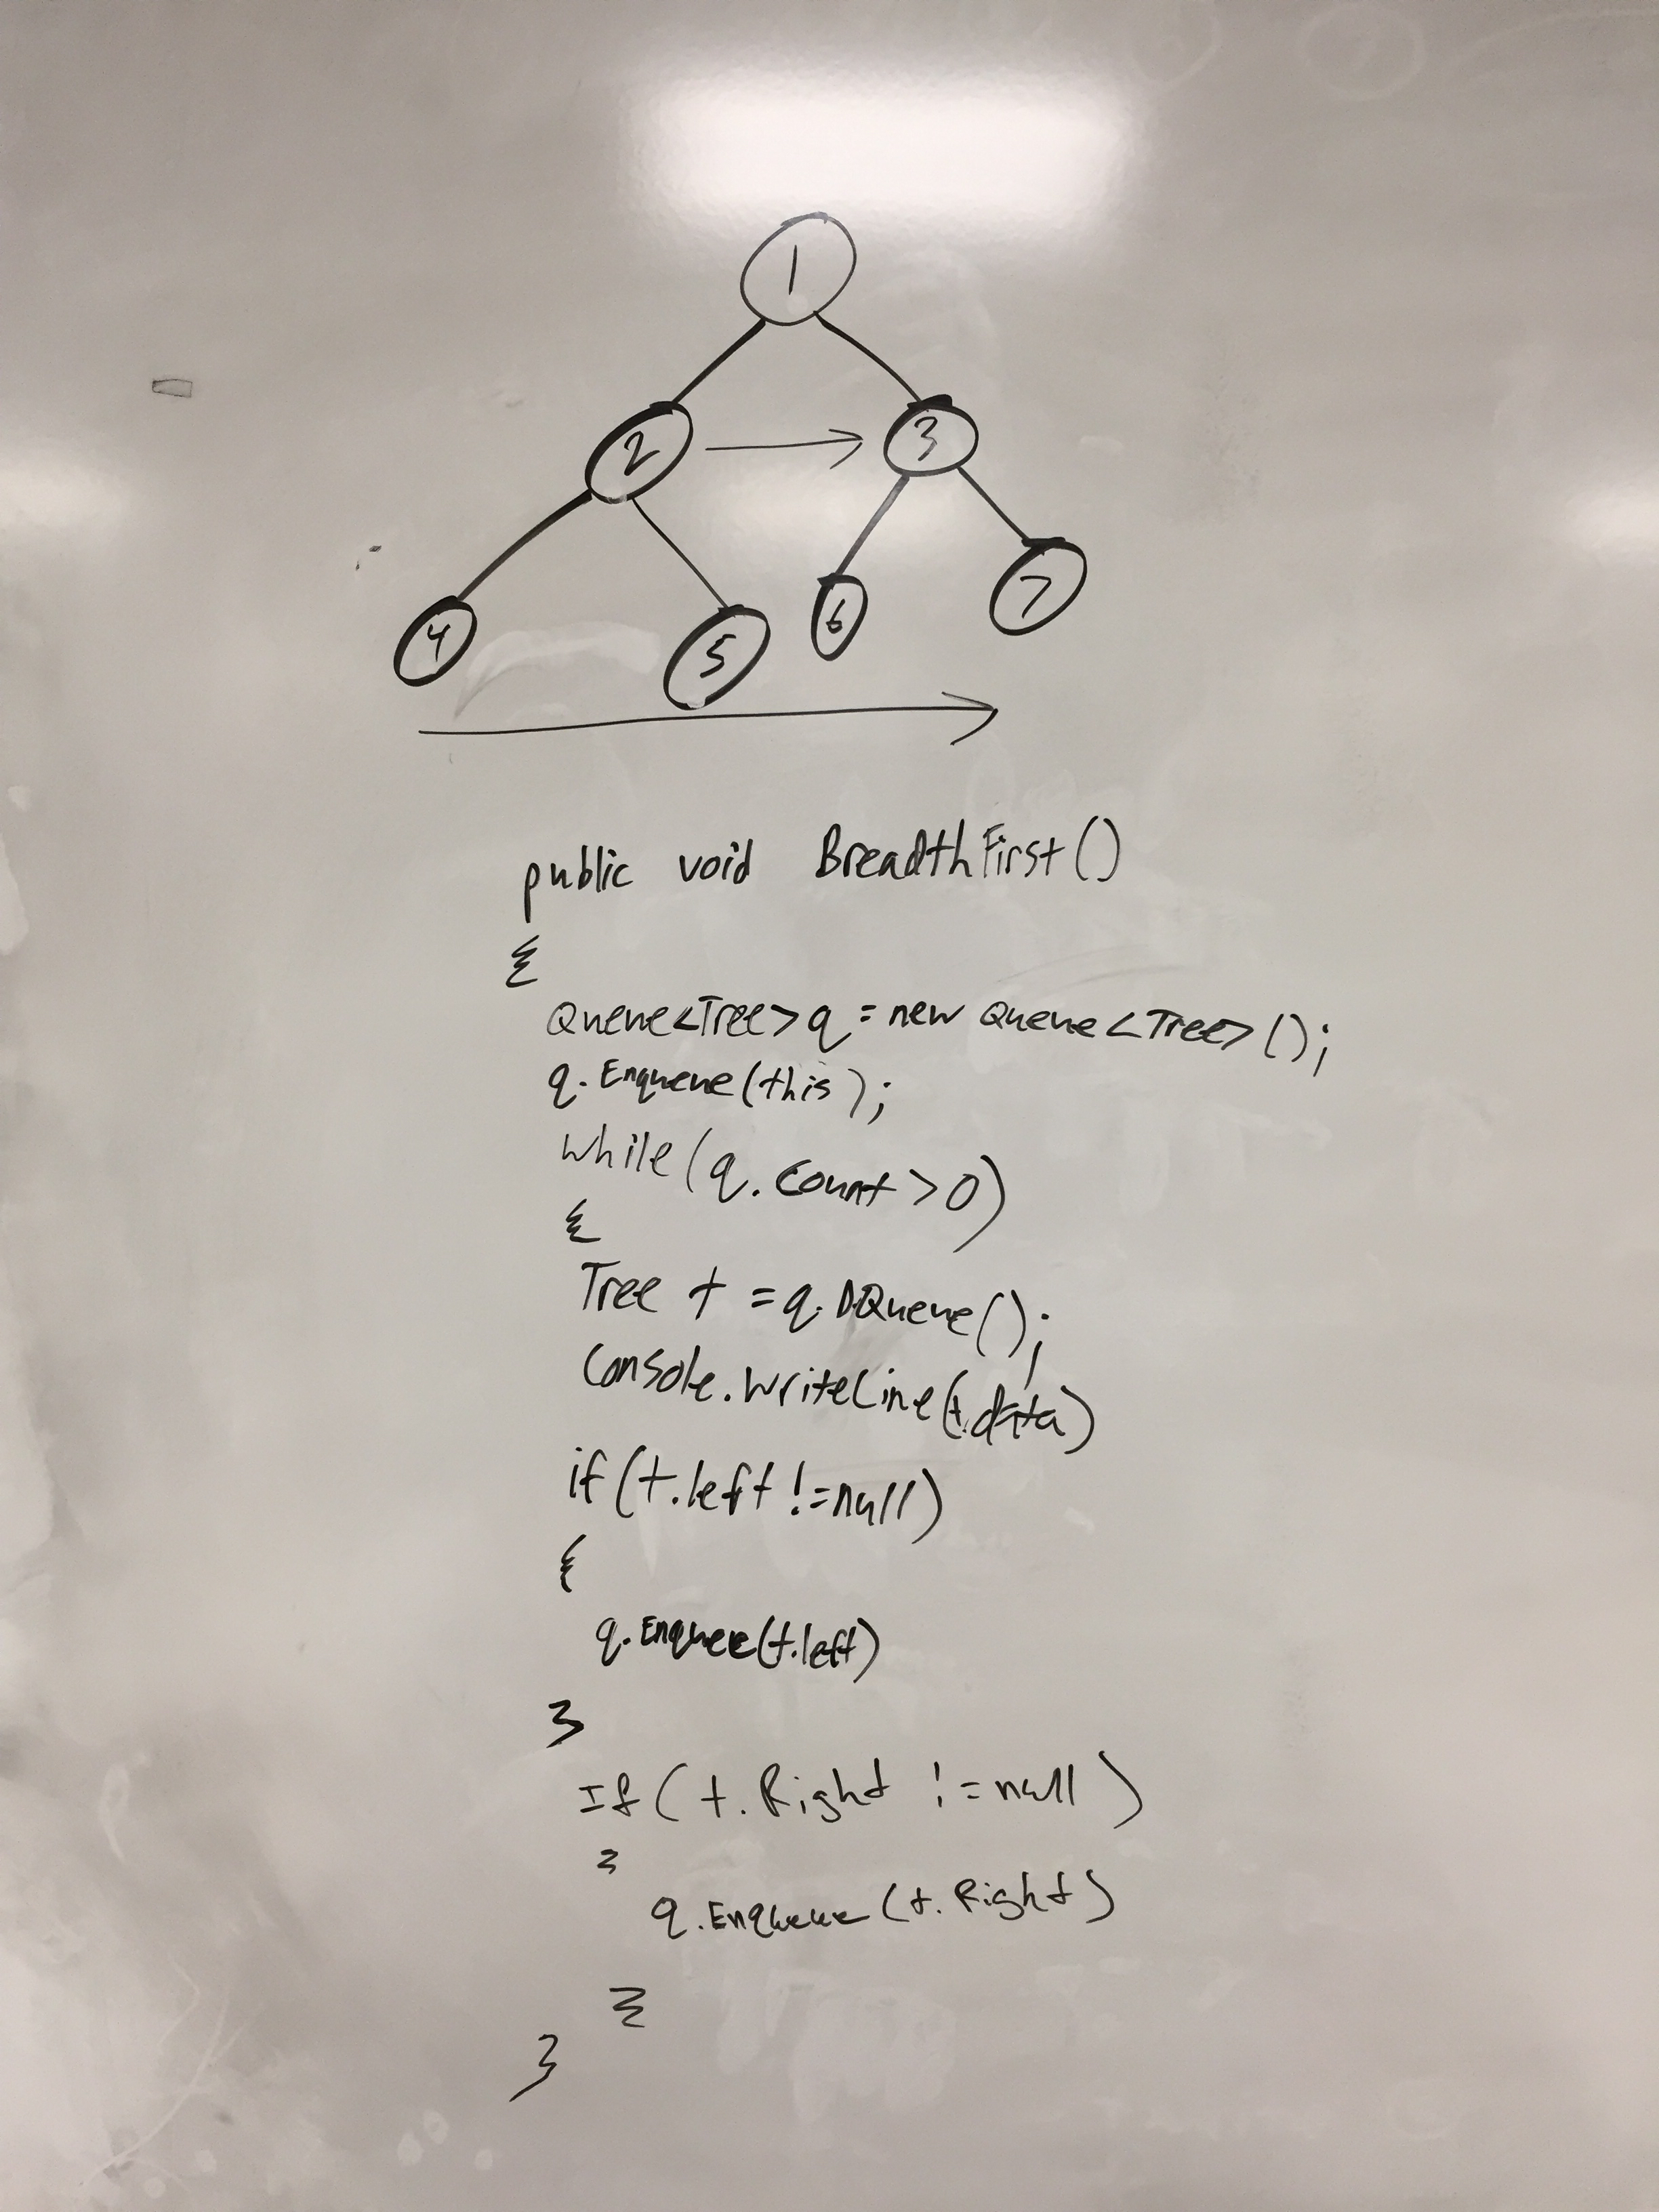 1
2 3
4 5 6 7
public void BreadthFirst()
{
Queue<Tree> q = new Queue<Tree>();
q.Enqueue(this);
while(q.count>0)
{
Tree t = q.DQueue();
Console.WriteLine(t.data)
if(t.left !=null)
{
q.Enquee(t.left)
}
If(t.Right !=null)
{
q.Enqueue(t.Right)
}
}